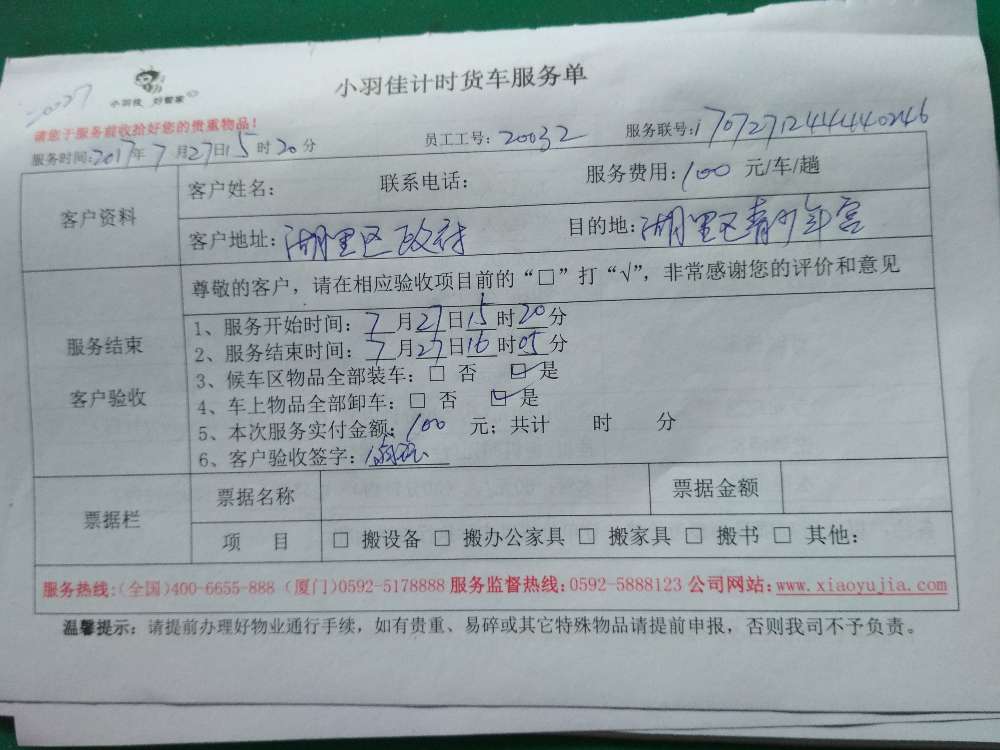 小羽佳 好管家
小羽佳计时货车服务单
请您于服务前收拾好您的贵重物品!
服务时间:2017年7月27日15时20分 员工工号:20032 服务联号:1707271244440246
客户资料
客户姓名: 联系电话: 服务费用:100 元/车/趟
客户地址:湖里区政府 目的地:湖里区青少年宫
服务结束
客户验收
尊敬的客户,请在相应验收项目前的“□”打“√”,非常感谢您的评价和意见
1、服务开始时间:7月27日15时20分
2、服务结束时间:7月27日16时05分
3、候车区物品全部装车:□ 否 ☑是
4、车上物品全部卸车:□ 否 ☑是
5、本次服务实付金额:100 元;共计 时 分
6、客户验收签字:
票据栏
票据名称 票据金额
项 目 □ 搬设备 □ 搬办公家具 □ 搬家具 □ 搬书 □ 其他:
服务热线:(全国)400-6655-888 (厦门)0592-5178888 服务监督热线:0592-5888123 公司网站:www.xiaoyujia.com
温馨提示:请提前办理好物业通行手续,如有贵重、易碎或其它特殊物品请提前申报,否则我司不予负责。